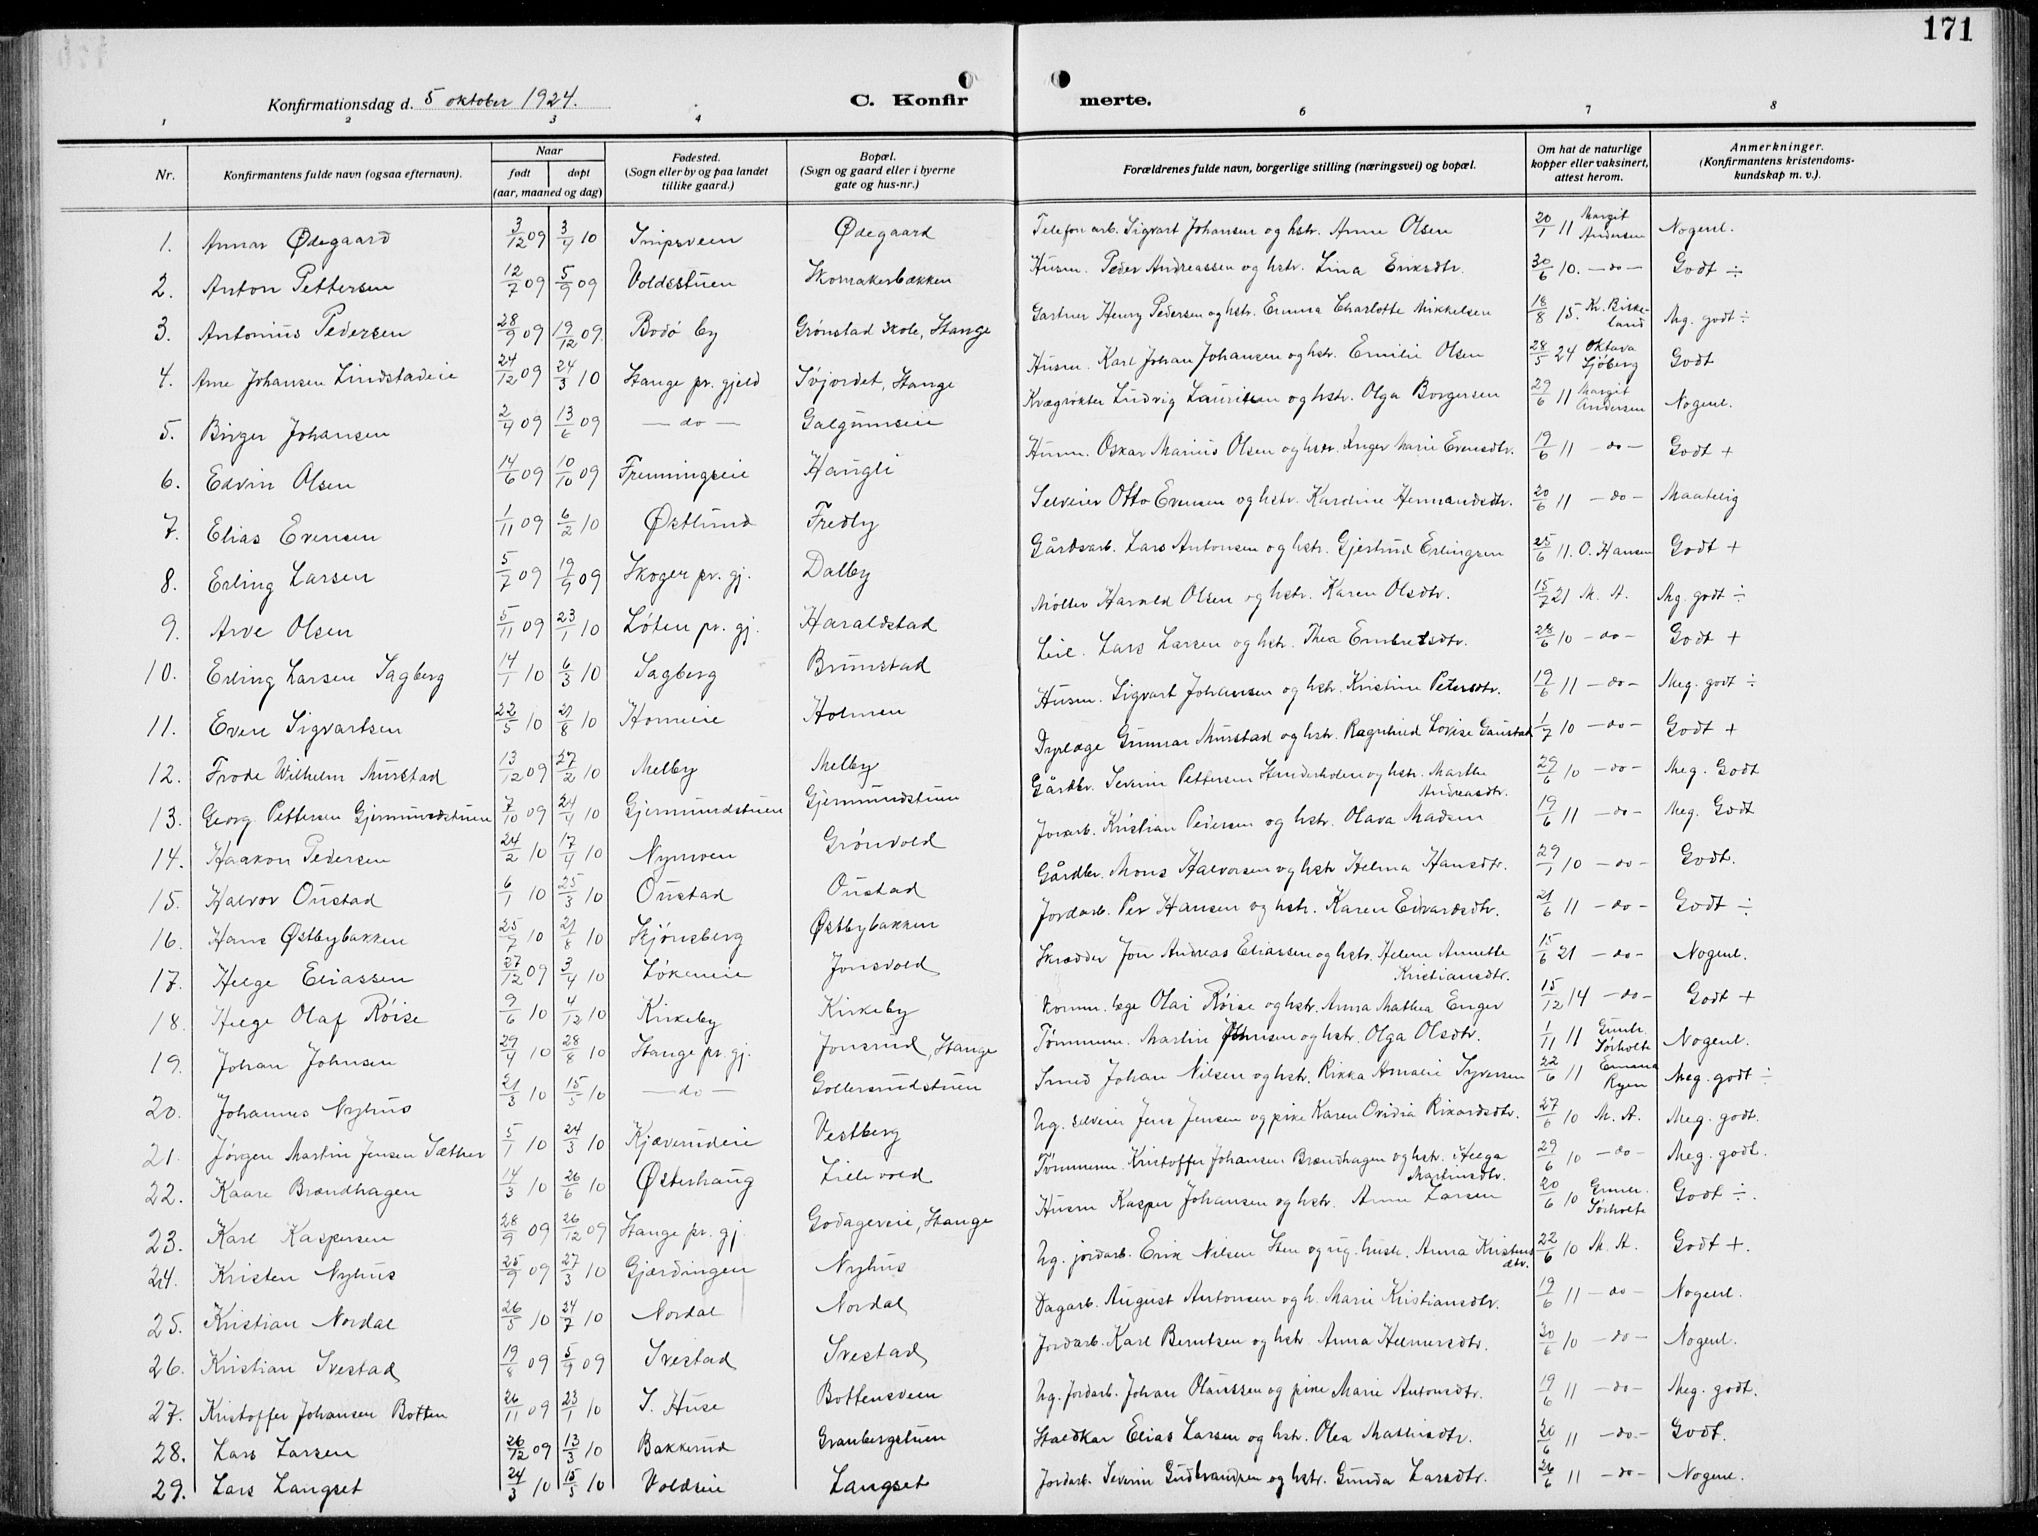 171
Konfirmationsdag d. 5 oktober 1924. C. Konfirmerte.
1 2 3 4 6 7 8
Nr. Konfirmantens fulde navn (ogsaa efternavn). Naar født døpt (aar, maaned og dag) Fødested. (Sogn eller by og paa landet tillike gaard.) Bopæl. (Sogn og gaard eller i byerne gate og hus-nr.) Forældrenes fulde navn, borgerlige stilling (næringsvei) og bopæl. Om hat de naturlige kopper eller vaksinert, attest herom. Anmerkninger. (Konfirmantens kristendomskundskap m. v.).
1. Annar Ødegaard 3/12 09 3/4 10 Snipsveen Ødegaard Telefon arb. Sigvart Johansen og hstr. Anne Olsen 20/1 11 Margit Andersen Nogenl.
2. Anton Pettersen 12/7 09 5/9 09 Voldsstuen Skomakerbakken Husm. Peder Andreassen og hstr. Lina Eriksdtr. 30/6 10. — do — Godt ÷
3. Antonius Pedersen 28/9 09 19/12 09. Bodø by Grønstad skole, Stange Gartner Henry Pedersen og hstr. Emma Charlotte Mikkelsen 18/8 15. Kr. Birkeland Mg. godt ÷
4. Arne Johansen Lindstadeie 24/12 09 24/3 10 Stange pr. gjeld Svjordet, Stange Husm. Karl Johan Johansen og hstr. Emilie Olsen 28/5 24 Oktava Sjøberg Godt
5. Birger Johansen 2/4 09 13/6 09 — do — Galgumseie Kvægrøkter Ludvig Lauritsen og hstr. Olga Borgersen 29/6 11 Margit Andersen Nogenl.
6. Edvin Olsen 14/6 09 10/10 09 Frenningseie Haugli Husm. Oskar Marius Olsen og hstr. Inger Marie Evensdtr. 19/6 11 — do — Godt +
7. Elias Evensen 1/11 09 6/2 10 Østlund Fredly Selveier Otto Evensen og hstr. Karoline Hermandsdtr. 20/6 11 — do — Maatelig
8. Erling Larsen 5/7 09 19/9 09 Skoger pr. gj. Dalby Gårdsarb. Lars Antonsen og hstr. Gjertrud Erlingsen 25/6 11. O. Hansen Godt +
9. Arve Olsen 5/11 09 23/1 10 Løten pr. gj. Haraldstad Møller Harald Olsen og hstr. Karen Olsdtr. 15/7 21 M. A. Mg. godt ÷
10. Erling Larsen Sagberg 14/1 10 6/3 10 Sagberg Brunstad Leil. Lars Larsen og hstr. Thea Embretsdtr. 28/6 10 — do — Godt +
11. Even Sigvartsen 22/5 10 21/8 10 Horneie Holmen Husm. Sigvart Johansen og hstr. Kristine Petersdtr. 19/6 11 — do — Meg. godt ÷
12. Frode Wilhelm Murstad 13/12 09 27/2 10 Melby Melby Dyrlæge Gunnar Murstad og hstr. Ragnhild Lovise Gaustad 1/7 10 — do — Godt +
13. Georg Pettersen Gjermundstuen 7/10 09 24/4 10 Gjermundstuen Gjermundstuen Gårdbr. Severin Pettersen og hstr. Marthe Andreasdtr. 29/6 10 — do — Meg. Godt
14. Haakon Pedersen 24/2 10 17/4 10 Nymoen Grønvold Jordarb. Kristian Pedersen og hstr. Olava Madsen 19/6 11 — do — Meg. Godt
15. Halvor Oustad 6/1 10 25/3 10 Oustad Oustad Gårdbr. Mons Halvorsen og hstr Helma Hansdtr. 29/1 10 — do — Godt.
16. Hans Østbybakken 25/7 10 21/8 10 Skjønsberg Østbybakken Jordarb. Per Hansen og hstr. Karen Edvardsdtr. 21/6 11 — do — Godt ÷
17. Helge Eliassen 27/12 09 3/4 10 Løkeneie Jonsvold Skrædder Jon Andreas Eliassen og hstr. Helene Annette Kristiansdtr. 15/6 21 — do — Nogenl.
18. Helge Olaf Røise 9/6 10 4/12 10 Kirkeby Kirkeby Komm. læge Olai Røise og hstr. Anna Mathea Enger 15/12 14 — do — Godt +
19. Johan Johnsen 29/4 10 28/8 10 Stange pr. gj. Jonsrud, Stange Tømmerm. Martin Johnsen og hstr. Olga Olsdtr. 1/11 11 Gunh. Sørholte Nogenl.
20. Johannes Nyhus 21/3 10 15/5 10 — do — Gollersrudstuen Smed Johan Nilsen og hstr. Rikka Amalie Syversen 22/6 11 Emma Ryen Meg. godt ÷
21. Jørgen Martin Jensen Sæther 5/1 10 24/3 10 Kjæverudeie Vestberg Ug. selveier Jens Jensen og pike Karen Ovidia Rikardsdtr. 27/6 10 M. A. Meg. godt.
22. Kaare Brændhagen 14/3 10 26/6 10 Østerhaug Lillevold Tømmerm. Kristoffer Johansen Brændhagen og hstr. Helga Martinsdtr. 29/6 10 — do — Meg. godt.
23. Karl Kaspersen 28/9 09 26/12 09 Stange pr. gj. Godagereie, Stange Husm Kasper Johansen og hstr. Anne Larsen 20/6 10 Gunh. Sørholte Godt ÷.
24. Kristen Nyhus 25/9 09 27/3 10 Gjærdingen Nyhus Ug. jordarb. Erik Nilsen Sten og ug. hush. Anna Kristensdtr. 22/6 10 M. A. Godt +.
25. Kristian Nordal 26/5 10 24/7 10 Nordal Nordal Dagarb. August Antonsen og h. Marie Kristiansdtr. 19/6 11 — do — Nogenl.
26. Kristian Svestad 19/8 09 5/9 09 Svestad Svestad Jordarb. Karl Berntsen og hstr. Anna Helmersdtr. 30/6 10 — do — Nogenl.
27. Kristoffer Johansen Botten 26/11 09 23/1 10 S. Huse Bottensveen Ug. Jordarb. Johan Olaussen og pike Marie Antonsdtr. 19/6 11 — do — Meg. godt.
28. Lars Larsen 26/12 09 13/3 10 Bakkerud Granbergstuen Staldkar Elias Larsen og hstr. Olea Mathisdtr. 20/6 11 — do — Godt.
29. Lars Langset 24/3 10 15/5 10 Voldseie Langset Jordarb. Severin Gudbrandsen og hstr. Gunda Larsdtr. 26/6 11 — do — Nogenl.